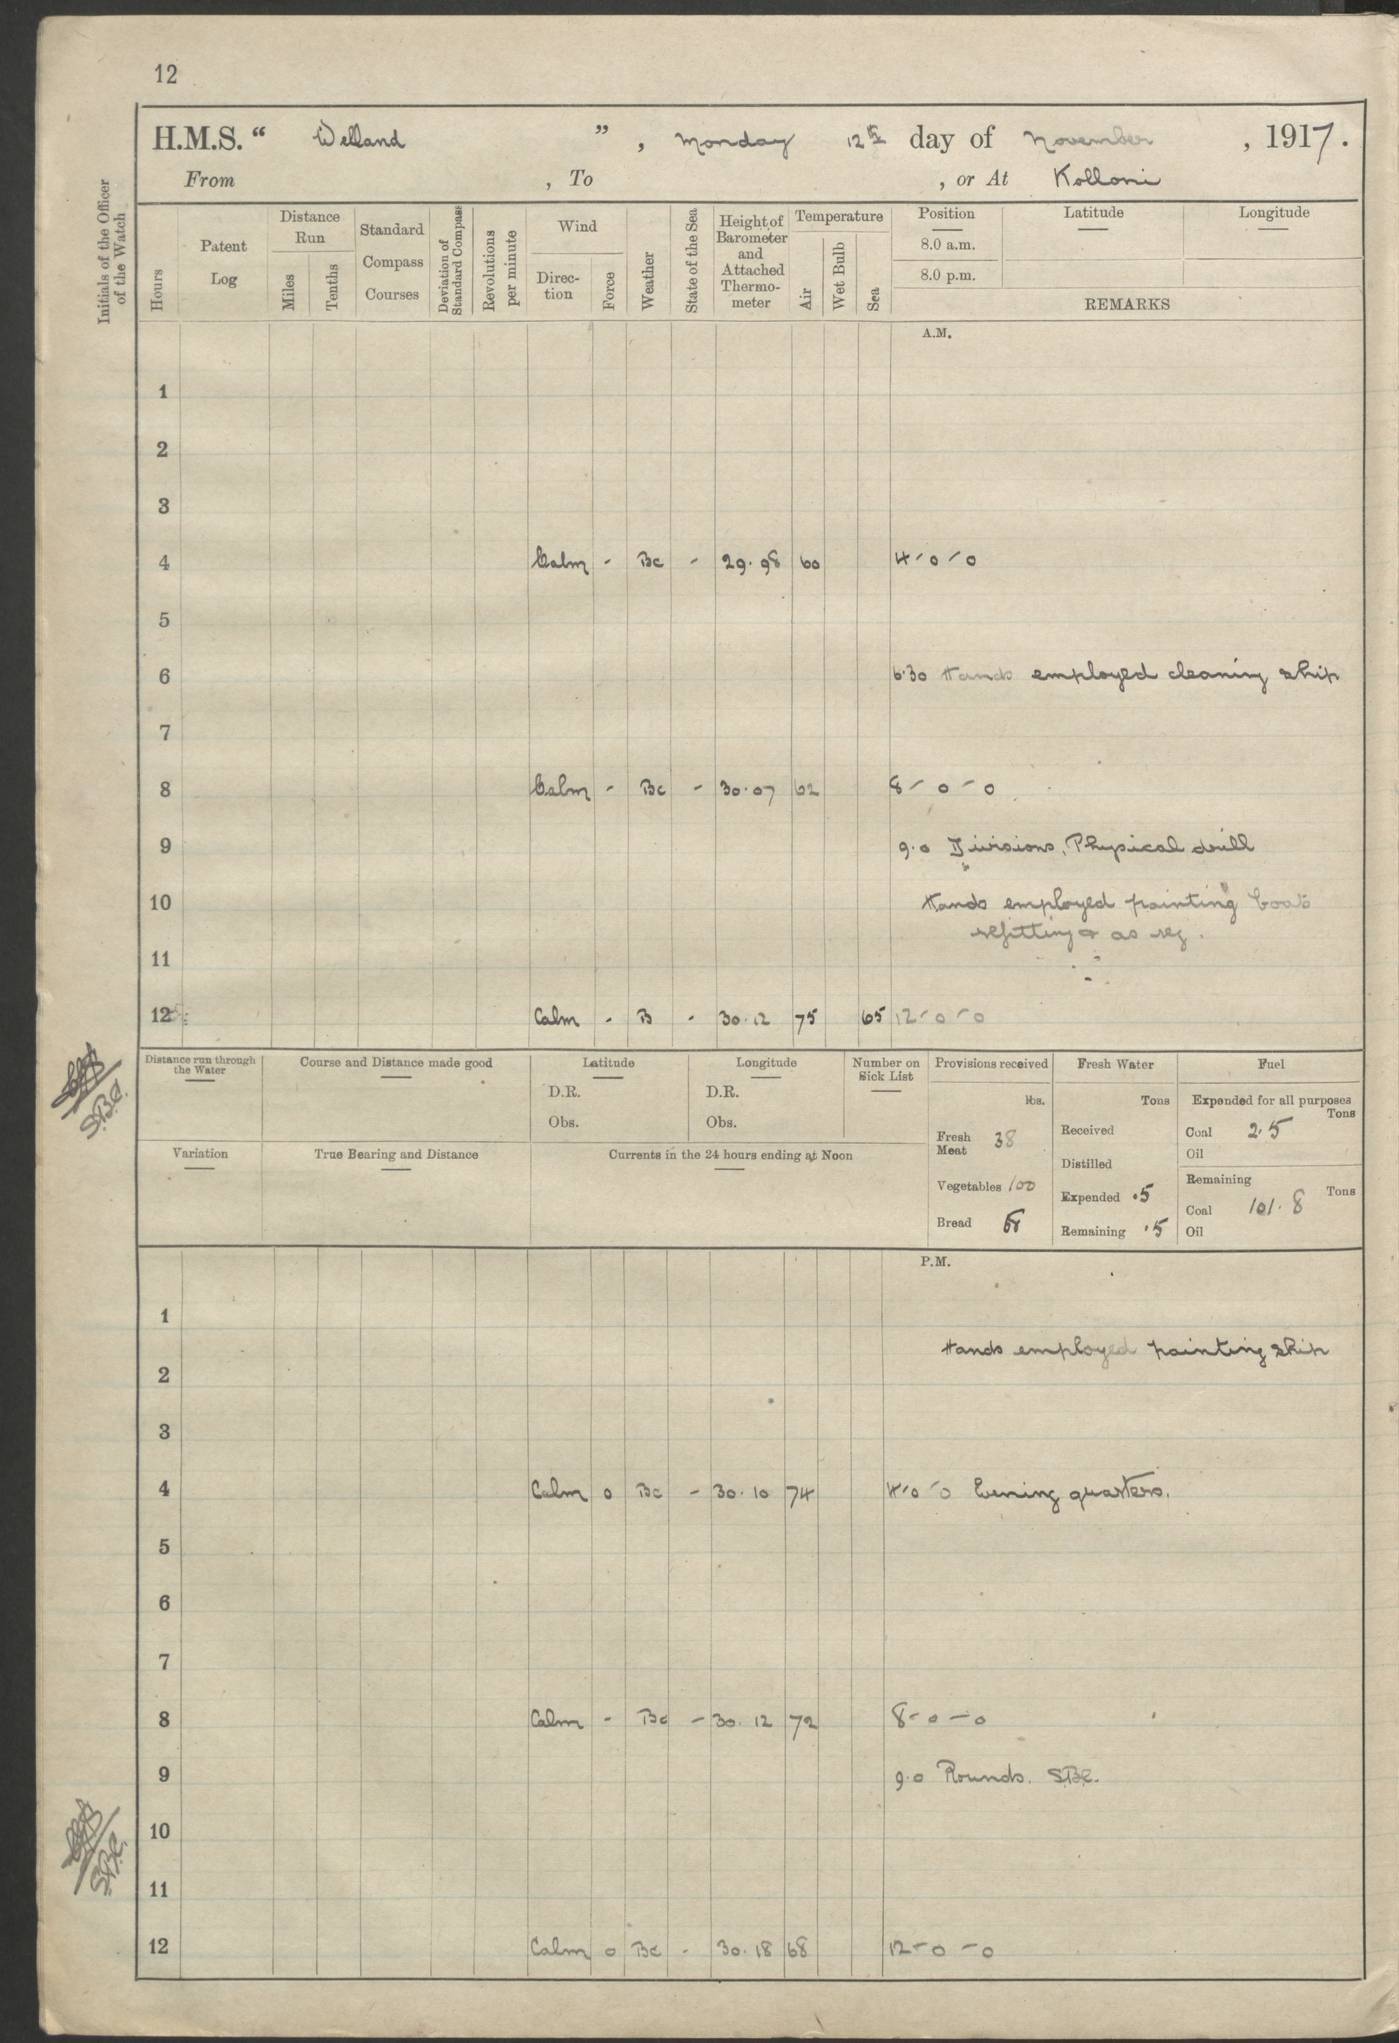 12
H.M.S. " Welland " , Monday 12th day of November , 1917.
From , To , or At Kolloni
Initials of the Officer of the Watch
Hours
Patent Log
Distance Run
Miles
Tenths
Standard Compass Courses
Deviation of Standard Compass
Revolutions per minute
Wind
Direc-tion
Force
Weather
State of the Sea
Height of Barometer and Attached Thermo-meter
Temperature
Air
Wet Bulb
Sea
Position Latitude Longitude
8.0 a.m.
8.0 p.m.
REMARKS
A.M.
1
2
3
4 Calm - Bc - 29.98 60 4-0-0
5
6 6.30 Hands employed cleaning ship
7
8 Calm - Bc - 30.07 62 8-0-0
9 9.0 Divisions, Physical drill
10 Hands employed painting boats
refitting & as req.
11
12 Calm - B - 30.12 75 65 12-0-0
Distance run through the Water
Course and Distance made good
Latitude
D.R.
Obs.
Longitude
D.R.
Obs.
Number on Sick List
Variation
True Bearing and Distance
Currents in the 24 hours ending at Noon
Provisions received
lbs.
Fresh Meat 38
Vegetables 100
Bread
Fresh Water
Tons
Received
Distilled
Expended .5
Remaining .5
Fuel
Expended for all purposes
Tons
Coal 2.5
Oil
Remaining
Tons
Coal 101.8
Oil
S.B.C.
P.M.
1
Hands employed painting ship
2
3
4 Calm 0 Bc - 30.10 74 4-0-0 Evening quarters.
5
6
7
8 Calm - Bc - 30.12 72 8-0-0
9 9.0 Rounds. S.B.C.
10
11
12 Calm 0 Bc - 30.18 68 12-0-0
S.B.C.